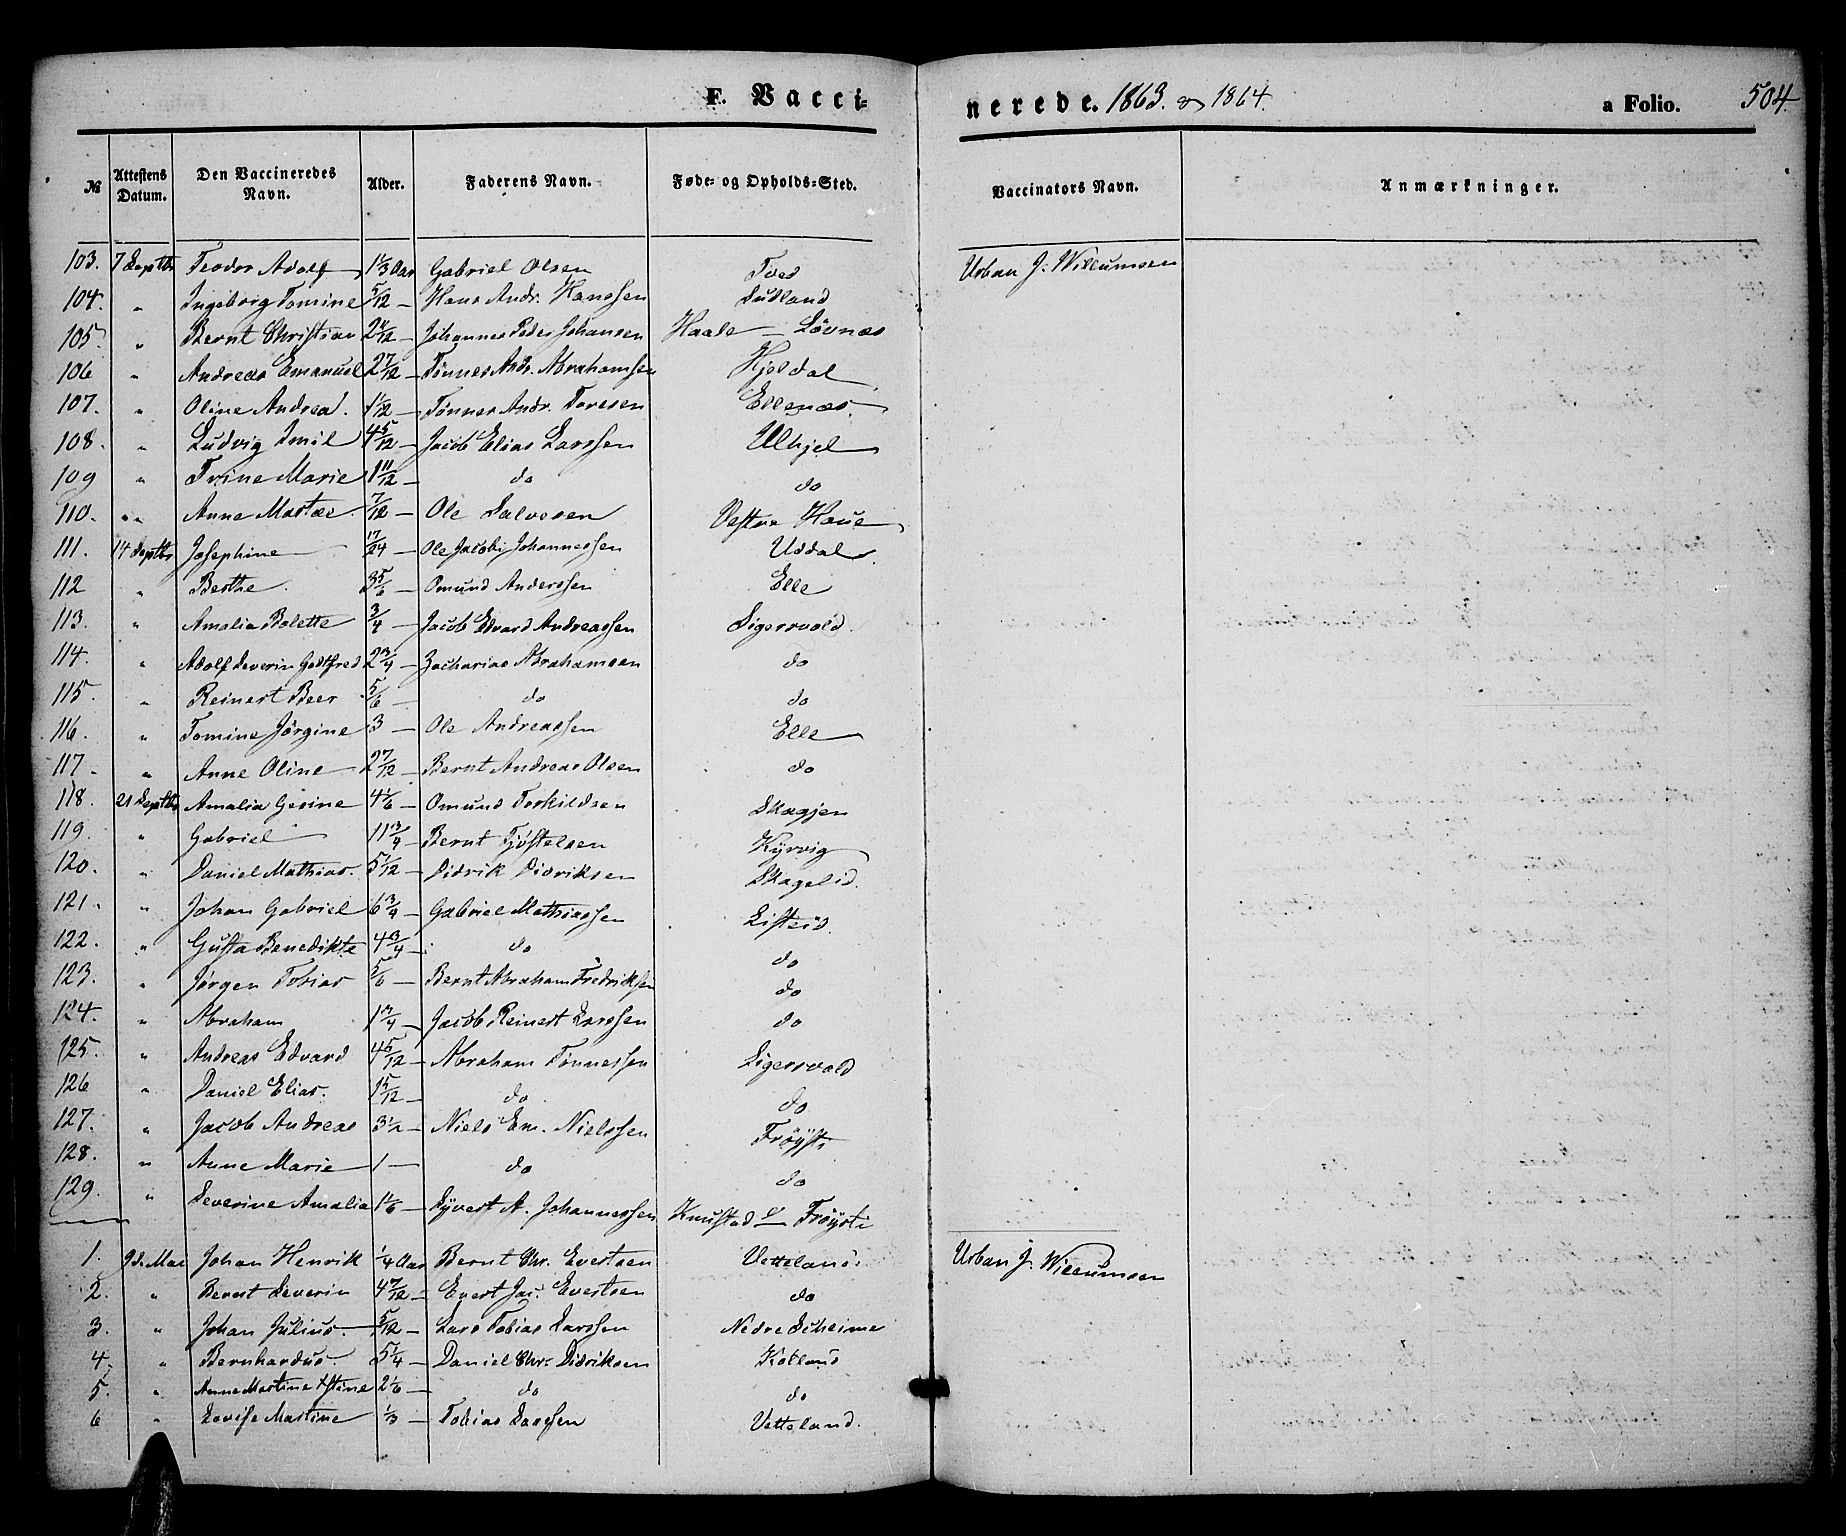 F. Vacci-
nerede. 1863. & 1864.
a Folio. 504.
№ Attestens Datum. Den Vaccineredes Navn. Alder. Faderens Navn. Føde- og Opholds-Sted. Vaccinators Navn. Anmærkninger.
103. 7 Septbr Teodor Adolf 1 1/3 Aar Gabriel Olsen Tved Urban J. Willumsen
104. " Ingeborg Tomine 5/12 — Hans Andr. Hanssen Sudland
105. " Bernt Christian — Johannes Peder Johansen Haale — Løvnæs
106 " Andreas Emanuel 2 7/12 — Tønnes Andr. Abrahamsen Hjeldal
107. " Oline Andrea. 1 1/12 — Tønnes Andr. Toresen Ellenæs.
108. " Ludvig Emil 4 5/12 — Jacob Elias Larssen Ulhjel
109 " Trine Marie 1 11/12 — do do
110. " Anne Marta — 7/12 — Ole Salvesen Vestre Haue
111. 14 Septbr Josephine 17/24 — Ole Jacob Johannessen Uddal
112 " Berthe. 3 5/6 — Omund Anderssen Elle
113. " Amalia Bolette 3/4 — Jacob Edvard Andreassen Sigersvold.
114. " Adolf Severin Godtfred 2 3/4 — Zacharias Abrahamsen do
115. " Reinert Beer 5/6 — do do
116. " Tomine Jørgine 3 — Ole Andreassen Elle
117. " Anne Oline 2 7/12 — Bernt Andreas Olsen do
118. 21 Septbr Amalia Gesine 4 1/6 — Omund Torkildsen Skagjen
119. " Gabriel 11 3/4 — Bernt Tjøstelsen Kyrvig
120. " Daniel Mathias. 5 1/12 — Didrik Didriksen Skagelid.
121. " Johan Gabriel 6 3/4 — Gabriel Mathiassen Listeid.
122. " Gusta Benedikte 4 3/4 — do do
123. " Jørgen Tobias 5/6 — Bernt Abraham Fredriksen do
124. " Abraham 1 3/4 — Jacob Reinert Larssen do
125. " Andreas Edvard 4 5/12 — Abraham Tønnessen Sigersvold
126 " Daniel Elias. 1 5/12 — do do
127. " Jacob Andreas 3 1/2 — Niels Em. Nielssen Frøysti
128. " Anne Marie 1 — do do
129. " Severine Amalia 1 1/6 — Syvert A. Johannessen Knustad — Frøysti
1. 9de Mai Johan Henrik 1/4 Aar Bernt Chr. Evertsen Vetteland Urban J. Willumsen
2. " Bernt Severin 4 7/12 — Evert Jac. Evertsen do
3. " Johan Julius. 5/12 — Lars Tobias Larssen Nedre Scheime
4. " Bernhardus. 5 1/4 — Daniel Chr. Didriksen Kolland
5. " Anne Martine 2 1/6 — do do
6 " Lovise Martine 1/3 — Tobias Larssen Vetteland.